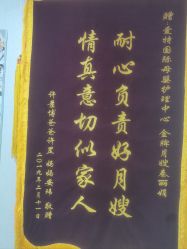 赠 爱特国际母婴护理中心 金牌月嫂秦丽娟
耐心负责好月嫂
情真意切似家人
许景博爸爸许罡 妈妈安玮 敬赠
二〇一九年二月十一日